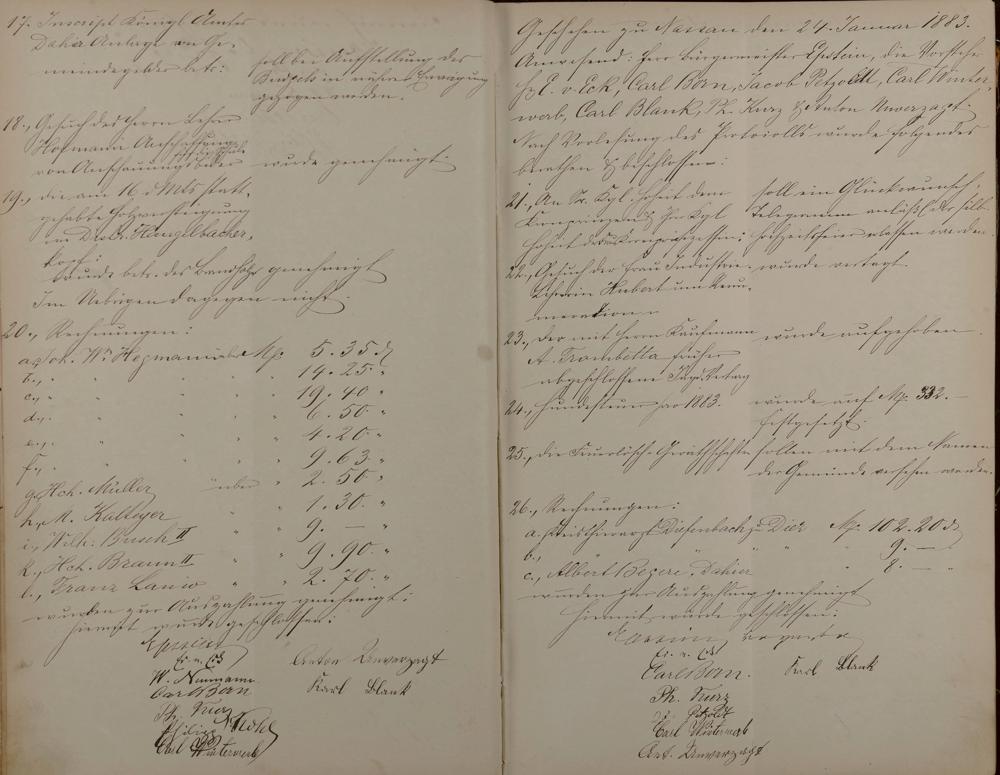 17. Inscript Königl. Amtes
Dahier Anlage von Ge-
meindegelder betr:
soll bei Aufstellung des
Budgets in nähere Erwägung
gezogen werden.
18., Gesuch des Herrn Lehrer
Hofmann Anschaffung
von Anschauungsbilder
wurde genehmigt
19., die am 16 d Mts statt-
gehabte Holzversteigerung
im Distr. Hengelbacher-
kopf:
wurde betr. des Brandholz genehmigt
Im Uebrigen dagegen nicht.
20., Rechnungen:
a., Joh. Wm Hegmann über Mp. 5.35 d
b., " " " 14.25 "
c., " " " 19.40 "
d., " " " 6.50 "
e., " " " 4.20 "
f., " " " 9.63 "
g., Hch. Müller über " 2.50 "
h., M. Kalteyer " " 1.30 "
i., Wilh. Busch II " " 9. — "
k., Hch. Braun II " " 9.90 "
l., Franz Lanio " " 2.70 "
wurden zur Auszahlung genehmigt:
hiermit wurde geschlossen:
Epstein
E. v. Eck
Anton Unverzagt
W. Neumann
Carl Born
Karl Blank
Ph. Kurz
Philipp
Carl Winterwerb
Geschehen zu Nassau den 24. Januar 1883.
Anwesend: Herr Bürgermeister Epstein, die Vorsteher
H. E. v. Eck, Carl Born, Jacob Petzoldt, Carl Winter-
werb, Carl Blank, Ph. Kurz & Anton Unverzagt.
Nach Vorlesung des Protocolls wurde folgendes
berathen & beschlossen:
21., An Sr. Kgl. Hoheit dem
Kronprinzen & Ihr Kgl
Hoheit der Frau Kronprinzessin:
soll ein Glückwunsch-
Telegramm anläßl. der silb.
Hochzeitsfeier erlassen werden.
22., Gesuch der Frau Industrie-
Lehrerin Hubert um Remu-
neration
wurde vertagt.
23., Der mit Herrn Kaufmann
A. Trombetta früher
abgeschlossene Jagd Vertrag
wurde aufgehoben.
24., Hundesteuer pro 1883.
wurde auf Mp. 332. —
festgesetzt.
25., die Feuerlösch-Geräthschaften sollen mit dem Namen
der Gemeinde versehen werden.
26., Rechnungen:
a. Diefenbach zu Diez Mp. 102.20 d
b., " " " " 9. — "
c., Albert Begere, Dahier " 8. — "
wurden zur Auszahlung genehmigt
hiermit wurde geschlossen:
Epstein
E. v. Eck
Carl Born.
Karl Blank
Ph. Kurz
Petzoldt
Carl Winterwerb
Ant. Unverzagt